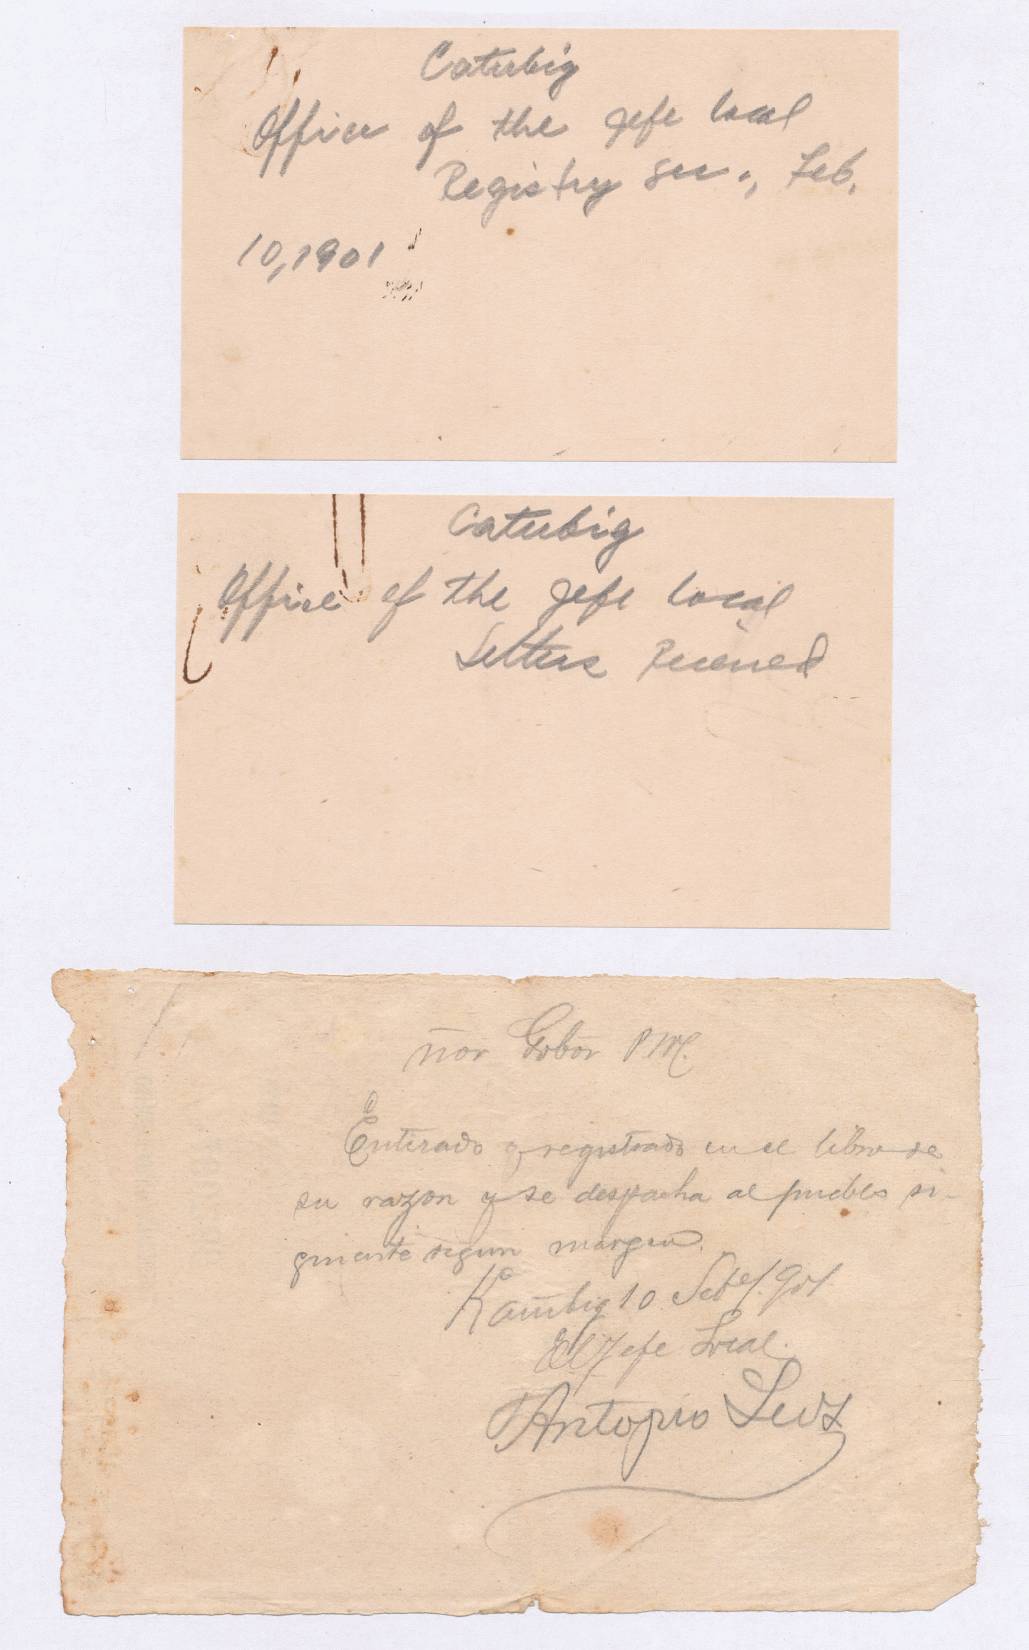 Catubig
Office of the Jefe local
Registry sec., Feb.
10, 1901
Catubig
Office of the Jefe local
Letters Received
ñor Gobor P M.
Enterado y registrado en el libro de
su razon y se despacha al pueblo si-
guiente segun margen.
10 901
El Jefe Local.
Antonio